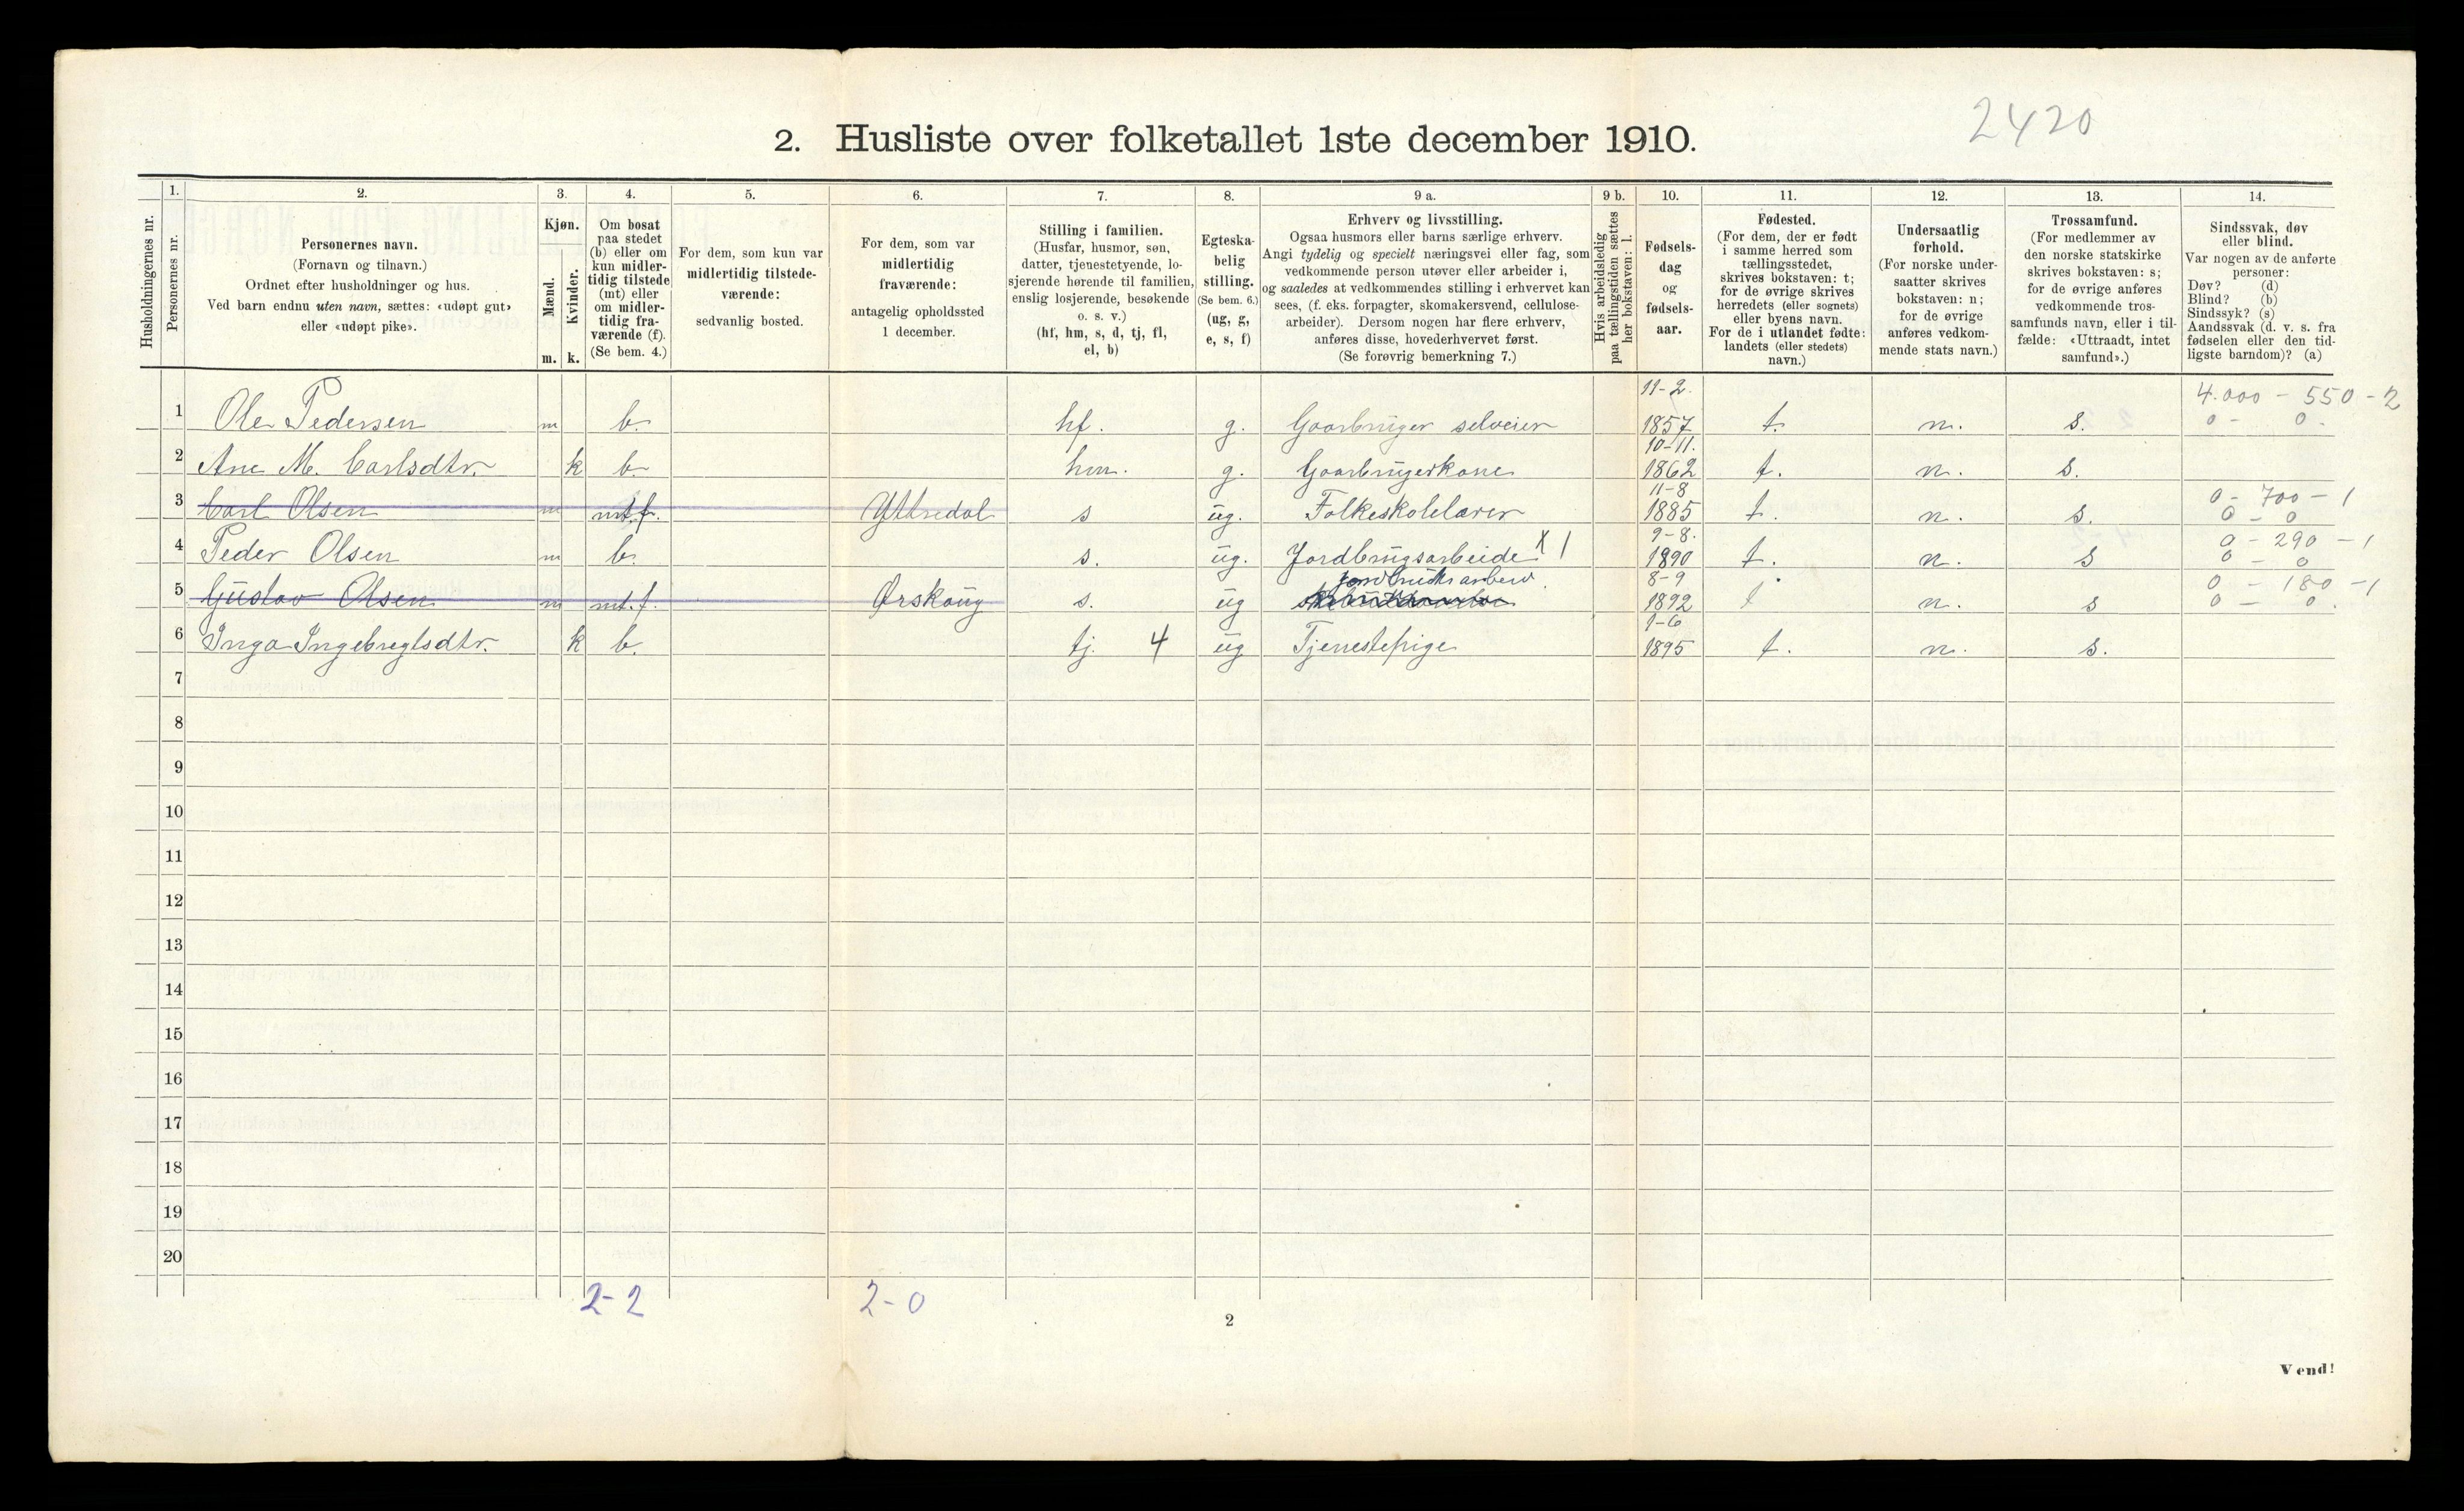 2420
2. Husliste over folketallet 1ste december 1910.
Husholdningernes nr.
1.
Personernes nr.
2.
Personernes navn.
(Fornavn og tilnavn.)
Ordnet efter husholdninger og hus.
Ved barn endnu uten navn, sættes: «udøpt gut»
eller «udøpt pike».
3.
Kjøn.
Mænd.
Kvinder.
m. k.
4.
Om bosat
paa stedet
(b) eller om
kun midler-
tidig tilstede
(mt) eller
om midler-
tidig fra-
værende (f).
(Se bem. 4.)
5.
For dem, som kun var
midlertidig tilstede-
værende:
sedvanlig bosted.
6.
For dem, som var
midlertidig
fraværende:
antagelig opholdssted
1 december.
7.
Stilling i familien.
(Husfar, husmor, søn,
datter, tjenestetyende, lo-
sjerende hørende til familien,
enslig losjerende, besøkende
o. s. v.)
(hf, hm, s, d, tj, fl,
el, b)
8.
Egteska-
belig
stilling.
(Se bem. 6.)
(ug, g,
e, s, f)
9 a.
Erhverv og livsstilling.
Ogsaa husmors eller barns særlige erhverv.
Angi tydelig og specielt næringsvei eller fag, som
vedkommende person utøver eller arbeider i,
og saaledes at vedkommendes stilling i erhvervet kan
sees, (f. eks. forpagter, skomakersvend, cellulose-
arbeider). Dersom nogen har flere erhverv,
anføres disse, hovederhvervet først.
(Se forøvrig bemerkning 7.)
9 b.
Hvis arbeidsledig
paa tællingstiden sættes
her bokstaven: l.
10.
Fødsels-
dag
og
fødsels-
aar.
11.
Fødested.
(For dem, der er født
i samme herred som
tællingsstedet,
skrives bokstaven: t;
for de øvrige skrives
herredets (eller sognets)
eller byens navn.
For de i utlandet fødte:
landets (eller stedets)
navn.)
12.
Undersaatlig
forhold.
(For norske under-
saatter skrives
bokstaven: n;
for de øvrige
anføres vedkom-
mende stats navn.)
13.
Trossamfund.
(For medlemmer av
den norske statskirke
skrives bokstaven: s;
for de øvrige anføres
vedkommende tros-
samfunds navn, eller i til-
fælde: «Uttraadt, intet
samfund».)
14.
Sindssvak, døv
eller blind.
Var nogen av de anførte
personer:
Døv? (d)
Blind? (b)
Sindssyk? (s)
Aandssvak (d. v. s. fra
fødselen eller den tid-
ligste barndom)? (a)
11-2. 4.000 - 550 - 2
1 Ole Pedersen m b. hf. g. Gaarbruger selveier 1857 t. n. s. 0 - 0.
10-11.
2 Ane M. Carlsdtr. k b. hm. g. Gaarbrugerkone 1862 t. n. s.
11-8 0 - 700 - 1
3 Carl Olsen m mt.f. Yttredal s ug. Folkeskolelærer 1885 t. n. s. 0 - 0
9-8. 0 - 290 - 1
4 Peder Olsen m b. s. ug. Jordbrugsarbeide X 1 1890 t. n. s 0 - 0
8-9 0 - 180 - 1
5 Gustav Olsen m mt.f. Ørskoug s. ug 1892 t n. s 0 - 0.
1-6
6 Inga Ingebregtsdtr. k b. tj. 4 ug Tjenestepige 1895 t. n. s.
7
8
9
10
11
12
13
14
15
16
17
18
19
20
2-2 2-0
2
Vend!